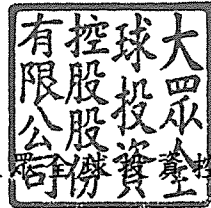 大眾全
球投資
控股股份
有限公司